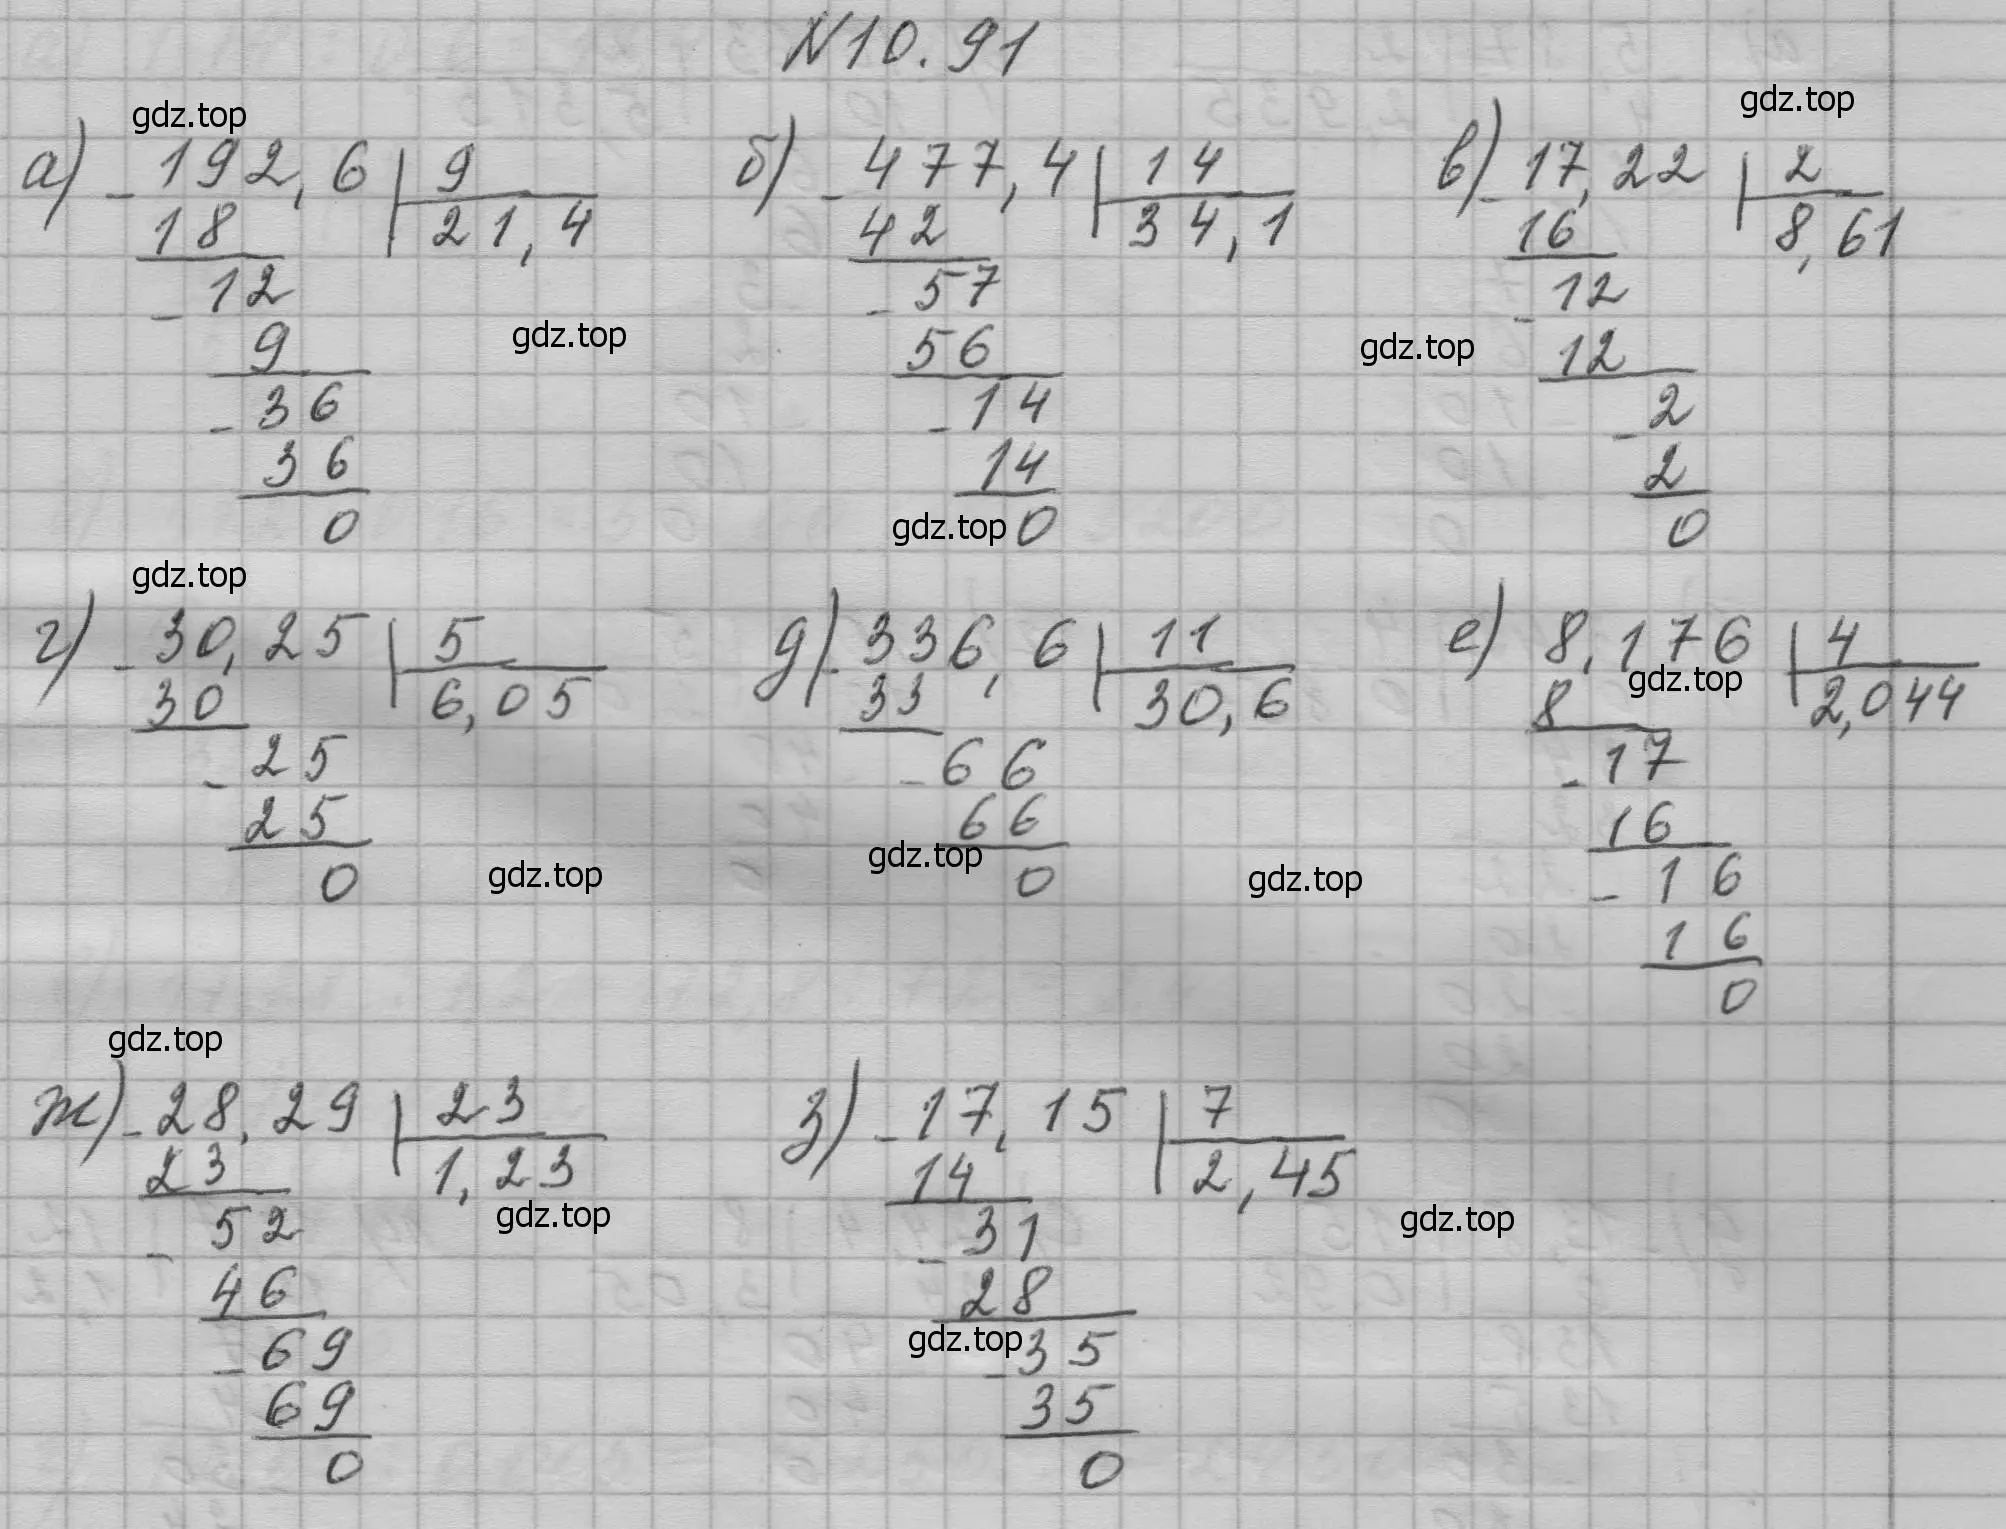 N10.91
gdz.top
gdz.top
а) - 192,6 | 9
18 21,4
- 12
9
- 36
36
0
б) - 477,4 | 14
42 34,1
- 57
56
- 14
14
0
в) - 17,22 | 2
16 8,61
- 12
12
- 2
2
0
gdz.top
gdz.top
gdz.top
gdz.top
г) - 30,25 | 5
30 6,05
- 25
25
0
д) - 336,6 | 11
33 30,6
- 66
66
0
е) 8,176 | 4
8 2,044
- 17
16
- 16
16
0
gdz.top
gdz.top
gdz.top
gdz.top
gdz.top
ж) - 28,29 | 23
23 1,23
- 52
46
- 69
69
0
з) - 17,15 | 7
14 2,45
- 31
28
- 35
35
0
gdz.top
gdz.top
gdz.top